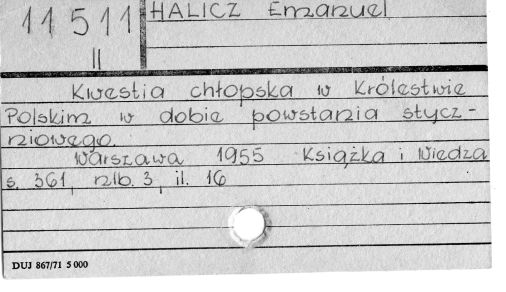 11511
II
HALICZ Emanuel
Kwestia chłopska w Królestwie
Polskim w dobie powstania stycz-
niowego.
Warszawa 1955 Książka i Wiedza
s. 361, nlb. 3, il. 16
DUJ 867/71 5 000